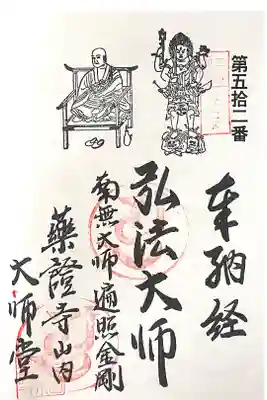 第五拾二番
奉納経
弘法大师
南無大师遍照金剛
藥證寺山内
大师堂